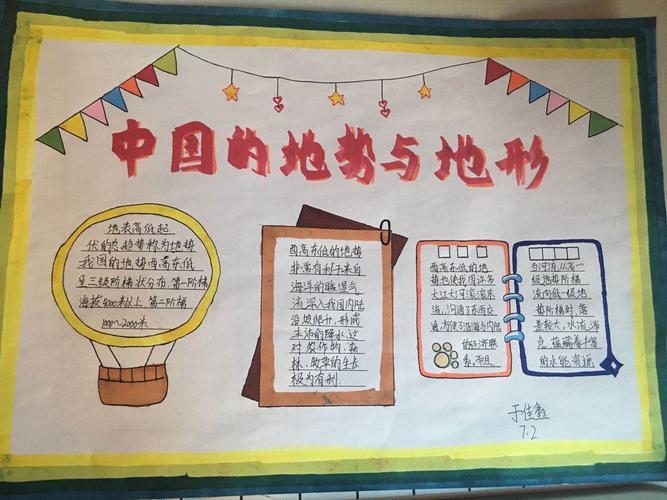 中国的地势与地形
地表高低起
伏的总趋势称为地势
我国的地势西高东低
呈三级阶梯状分布第一阶梯
海拔4000米以上第二阶梯
1000~2000米
西高东低的地势
非常有利于来自
海洋的暖湿气
流深入我国内陆
沿坡爬升,形成
生活的降水,这
对农作物、森
林、牧草的生长
极为有利.
西高东低的地
势也使我国许多
大江大河滚滚东
流,沟通了东西交
通,方便了沿海与内陆
的经济联
系。而且
当河流从高一
级地势阶梯
流向低一级地
势阶梯时,落
差较大,水流湍
急,蕴藏着丰富
的水能资源
于佳鑫
7.2